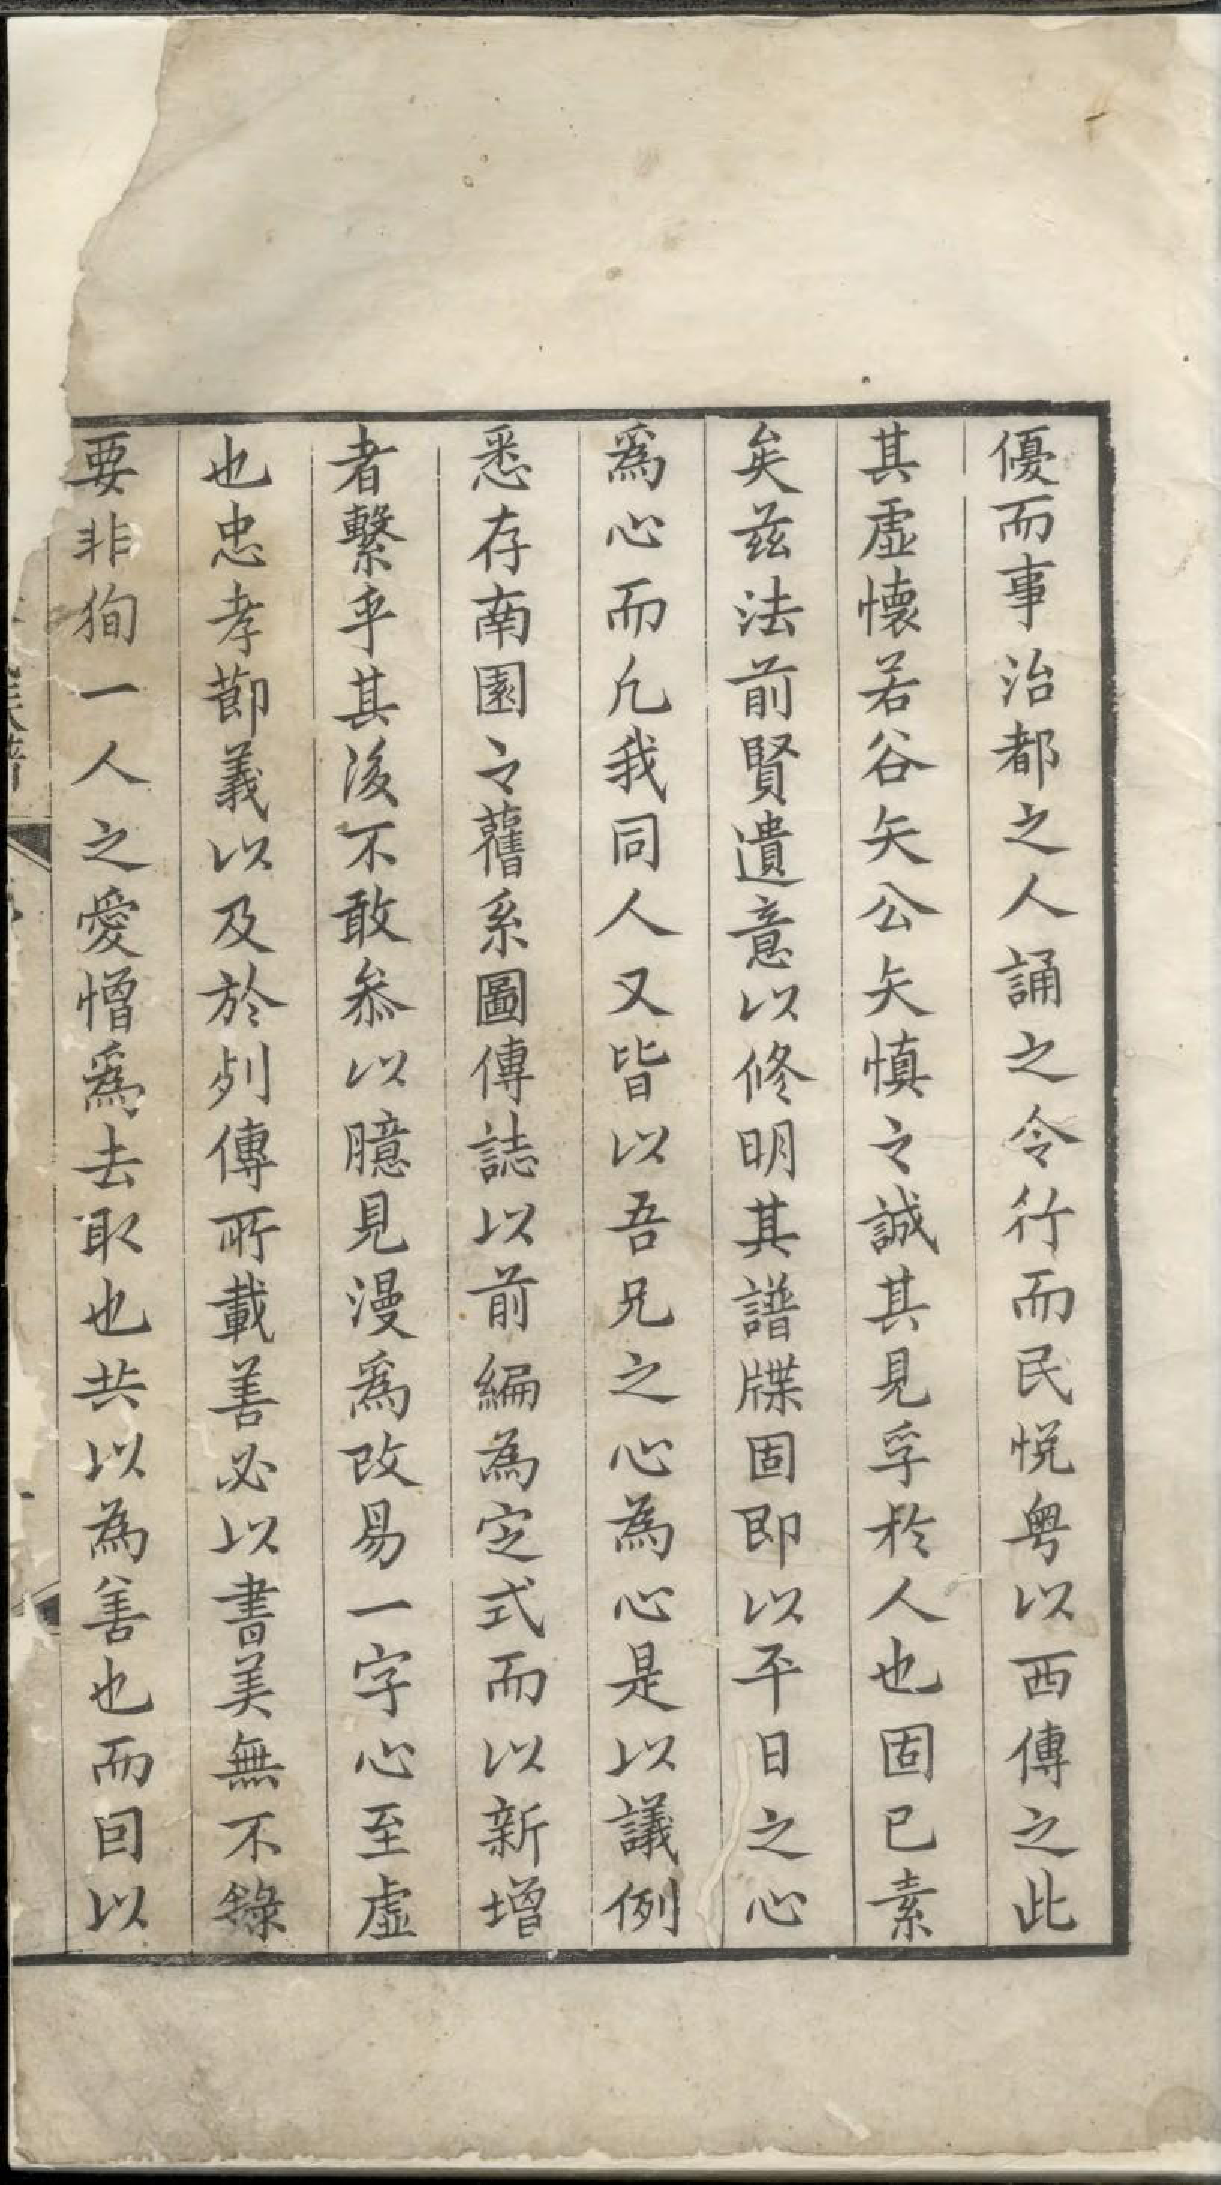 優而事治都之人誦之令行而民悅粵以西傳之此
其虛懷若谷矢公矢慎之誠其見孚於人也固已素
矣茲法前賢遺意以修明其譜牒固即以平日之心
為心而凢我同人又皆以吾兄之心為心是以議例
悉存南園之舊系圖傳誌以前編為定式而以新增
者繫乎其後不敢叅以臆見漫為改易一字心至虛
也忠孝節義以及於列傳所載善必以書美無不錄
要非狥一人之愛憎為去取也共以為善也而因以
族譜